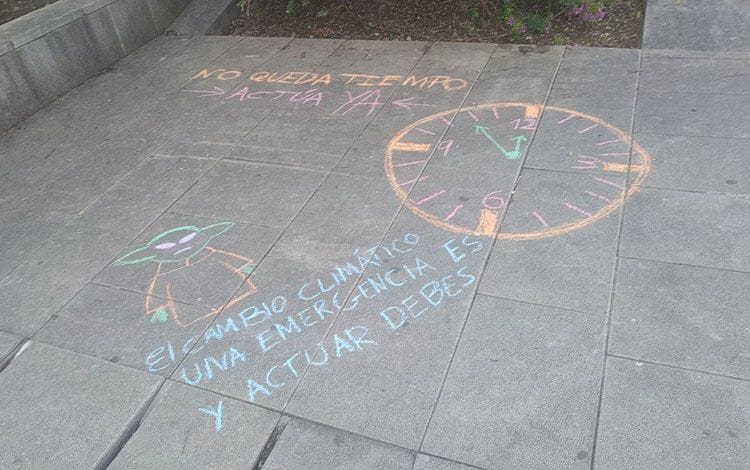 NO QUEDA TIEMPO
→ ACTÚA YA ←
12
9
3
6
El CAMBIO CLIMÁTICO ES
UNA EMERGENCIA
Y ACTUAR DEBES